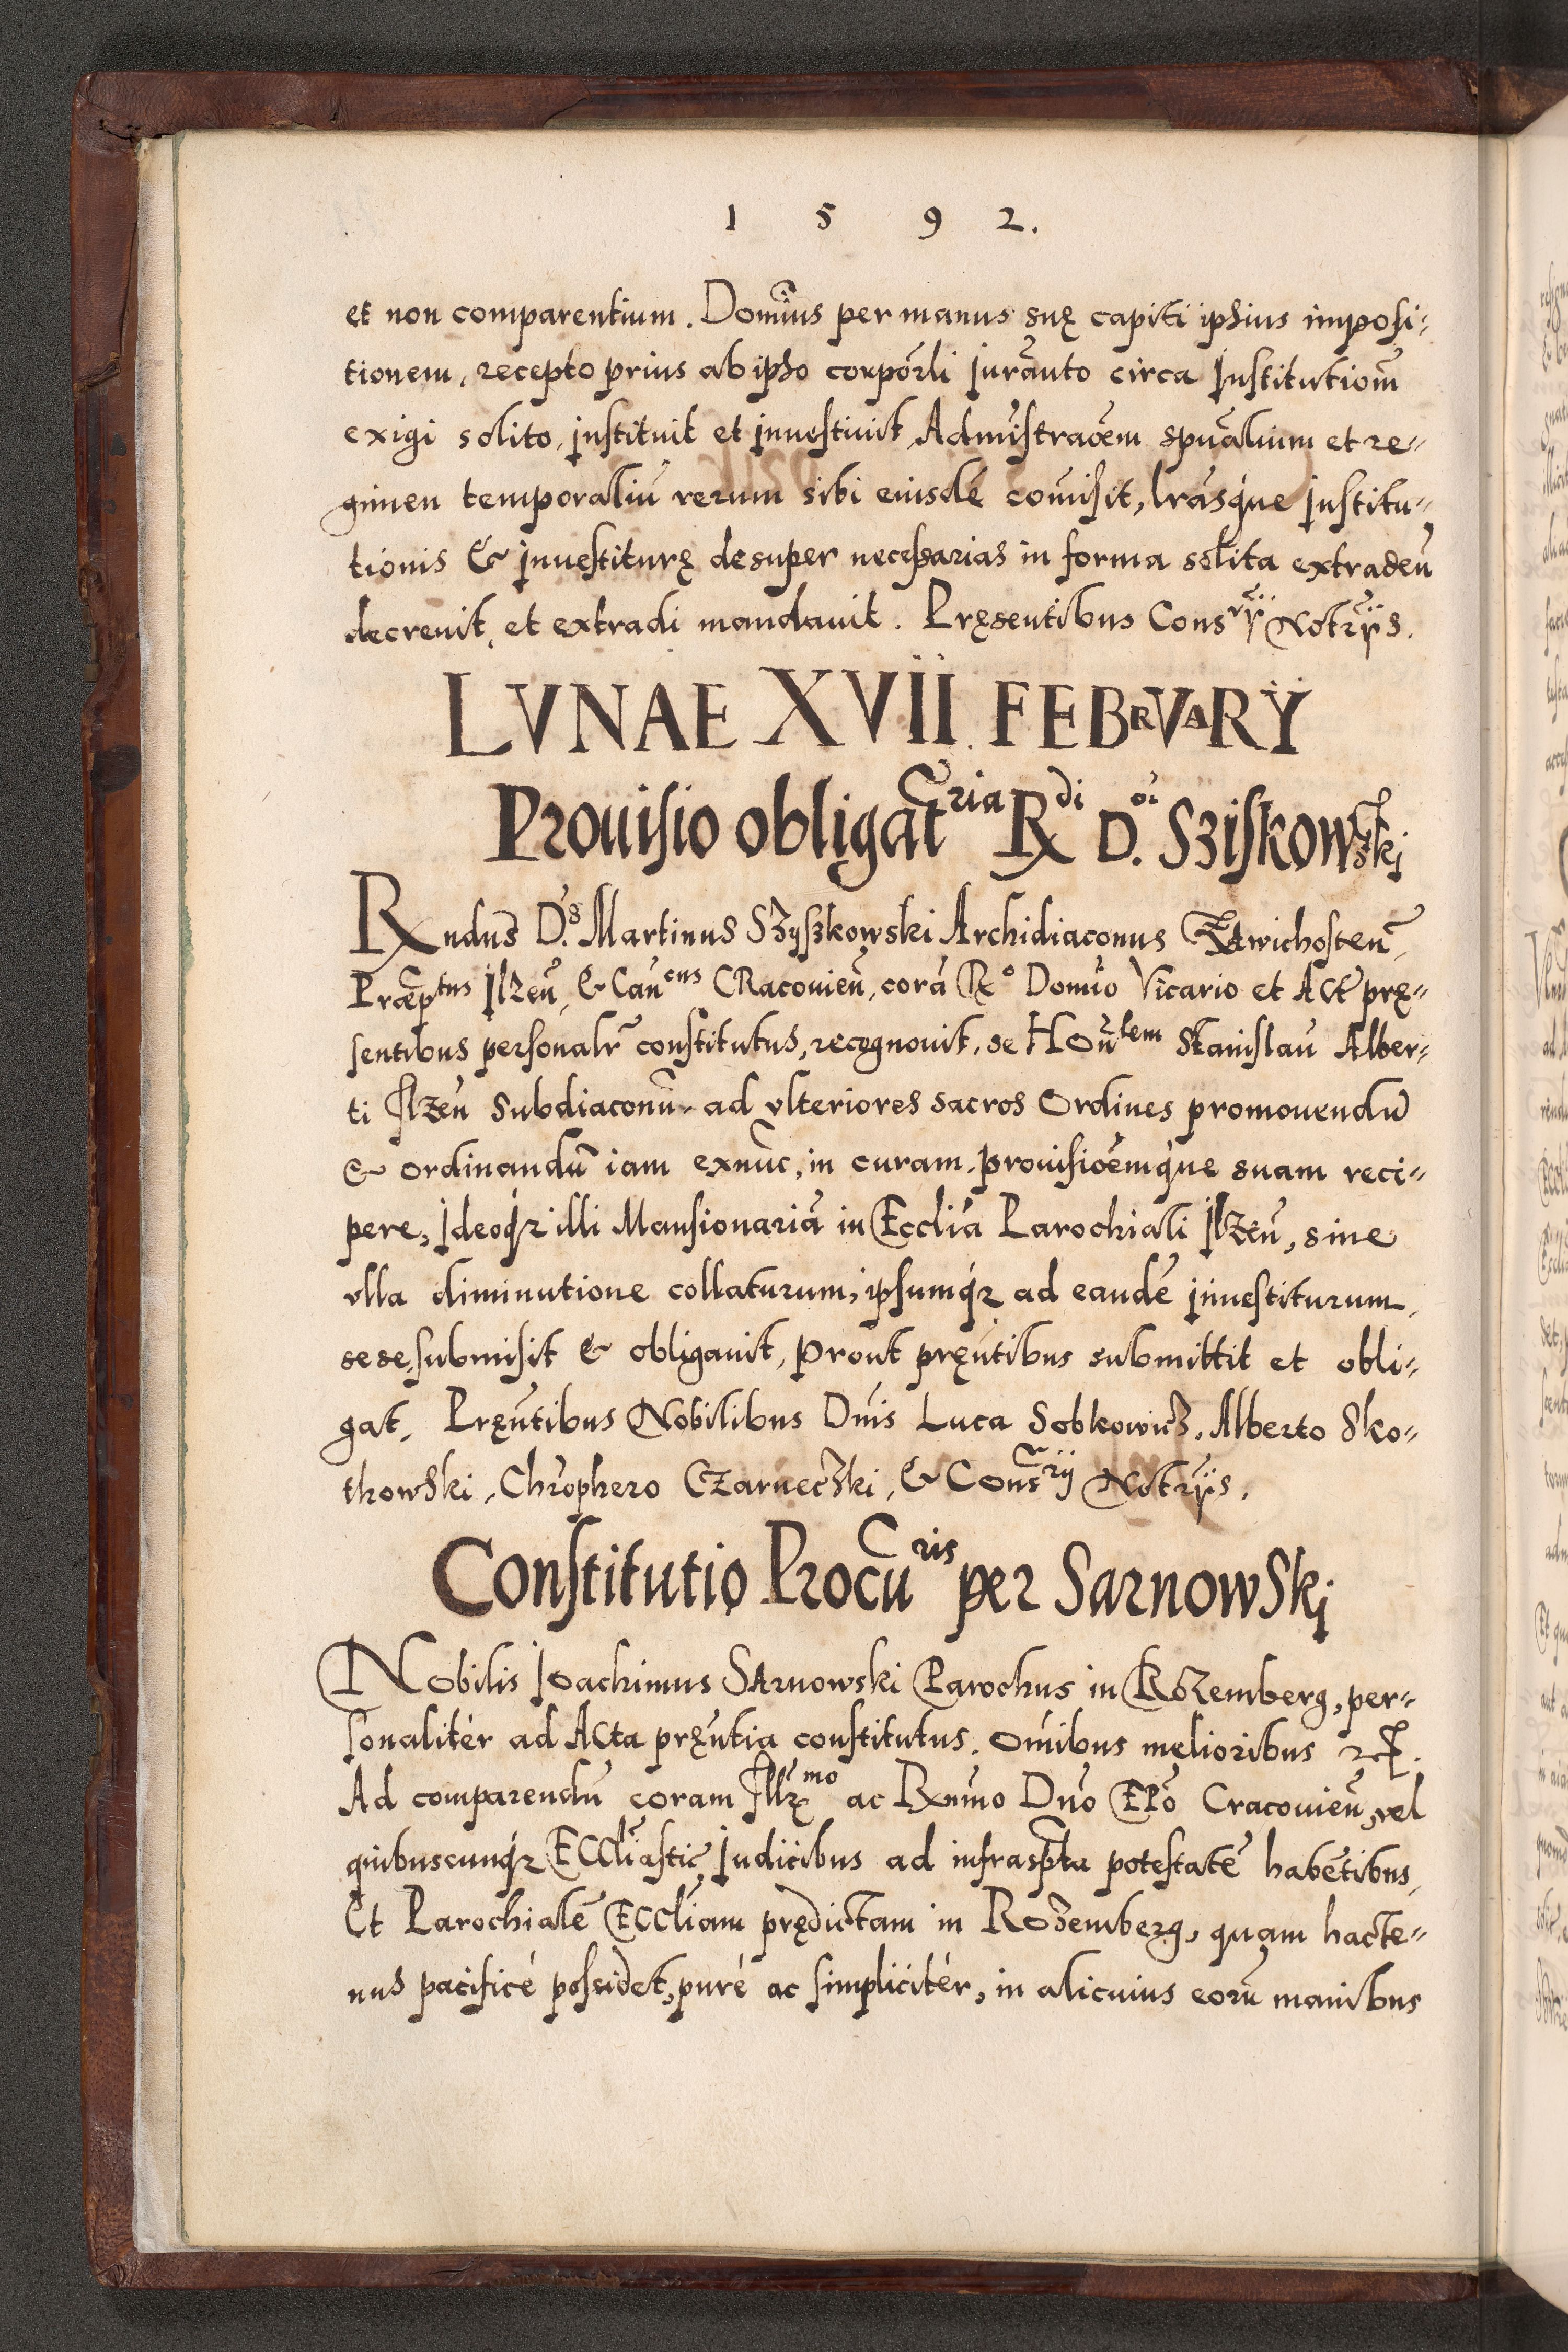 1 5 9 2.
et non comparentium. Domĩus per manus suę capiti ipsius imposi-
tionem, recepto prius ab ipso corporli jurãnto circa Institutiom̃
exigi solito, instituit et inuestiuit, Admĩstracẽm spũalium et re-
gimen temporaliũ rerum sibi eiusdẽ com̃isit, lrãsque institu-
tionis & inuestiturę desuper necessarias in forma solita extradeñ
decreuit, et extradi mandauit. Pręsentibus Consrÿ Notrÿs.
LVNAE XVII FEBRVARŸ
Prouisio obligatria Rdi D. oi Sziskowski
Rndus Ds. Martinus Szyszkowski Archidiaconus Zawichosteñ,
Præptus Ilzeñ, & Cañcus CRacouieñ, corã Ro Domño Vicario et Act prę-
sentibus personalr̃ constitutus, recognouit, se Hoñlem Stanislaũ Alber-
ti Ilzeñ Subdiaconũ ad vlteriores sacros Ordines promouendũ
& ordinandũ iam exnũc, in curam, prouisioẽmque suam reci-
pere, Ideoqz illi Mansionariã in Ecclĩa Parochiali Ilzeñ, sine
vlla diminutione collaturum, ipsumqz ad eandẽ inuestiturum,
sese submisit & obligauit, prout pręñtibus submittit et obli-
gat. Pręñtibus Nobilibus Dñis Luca Sobkowicz, Alberto Sko-
thowski, Chrophero Czarneczki, & Consrÿ Notrÿs.
Constitutio Procuris per Sarnowski
Nobilis Ioachimus Sarnowski Parochus in Rozemberg, per-
sonalitèr ad Acta pręñtia constitutus. Om̃ibus melioribus etc.
Ad comparendũ coram Illrmo ac Rnmo Dño EPõ Cracouieñ, vel
quibuscunqz Ecclĩastic Judicibus ad infrasptã potestatẽ habẽtibus,
Et Parochialẽ Ecclĩam prędictam in Rozemberg, quam hacte-
nus pacificè possidet, purè ac simplicitèr, in alicuius eorũ manibus